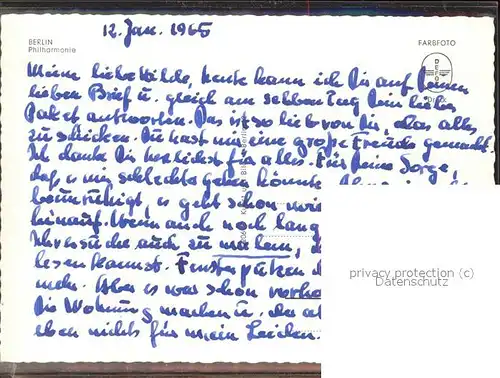 12. Jan. 1965
BERLIN
Philharmonie
FARBFOTO
Meine liebe Hilde, heute kann ich Dir auf Deinen
lieben Brief u. gleich am selben Tag Dein liebes
Paket antworten. Das ist so lieb von Dir, das alles
zu schicken. Du hast mir eine große Freude gemacht.
Ich danke Dir herzlichst für alles. Für Deine Sorge,
daß es mir schlechter gehen könnte
beunruhigt es geht schon
hinauf. Wenn auch noch lang
Ich versuche auch zu
lesen kannst. Fensterputzen
mehr. Aber es war schon
die Wohnung machen u.
eben nichts für mein Leiden.
privacy protection (c)
Datenschutz